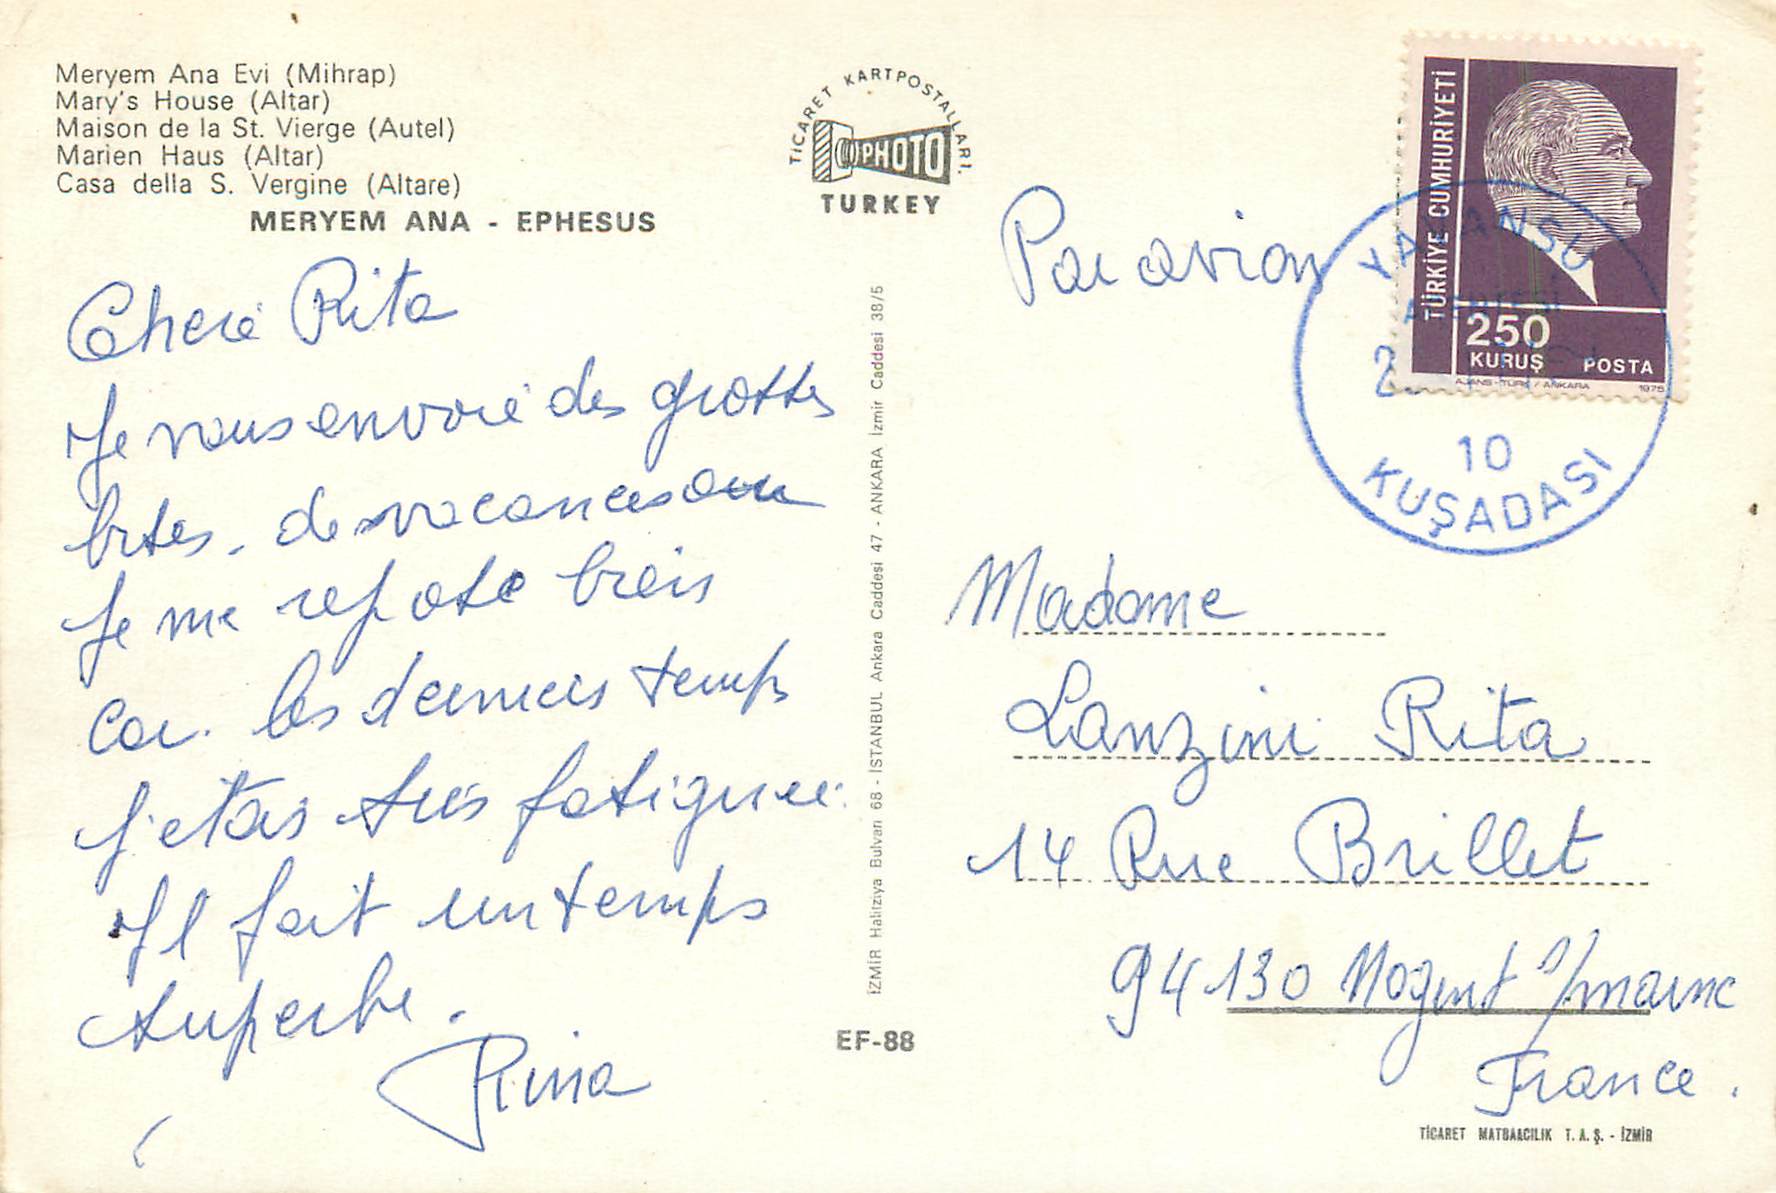 Meryem Ana Evi (Mihrap)
Mary's House (Altar)
Maison de la St. Vierge (Autel)
Marien Haus (Altar)
Casa della S. Vergine (Altare)
MERYEM ANA - EPHESUS
TİCARET KARTPOSTALLARI.
PHOTO
TURKEY
Chere Rita
Je vous envoie des grosses
bises, de vacances
Je me repose bien
car les derniers temps
j'etais très fatiguée.
Il fait un temps
superbe.
Rina
İZMİR Halitziya Bulvarı 68 - İSTANBUL Ankara Caddesi 47 - ANKARA İzmir Caddesi 38/5
EF-88
Par avion
TÜRKİYE CUMHURİYETİ
250
KURUŞ POSTA
AJANS-TÜRK / ANKARA 1975
10
KUŞADASI
Madame
Lanzini Rita
14 Rue Brillet
94130 Nogent s/marne
France.
TİCARET MATBAACILIK T. A. Ş. - İZMİR